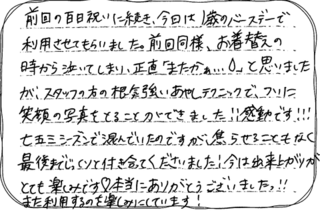 前回の百日祝いに続き、今日は1歳のバースデーで
利用させてもらいました。前回同様、お着替えの
時から泣いてしまい、正直「またかぁ…。」と思いました
が、スタッフの方の根気強いあやしテクニックで、ついに
笑顔の写真をとることができました!!感動です!!!
七五三シーズンで混んでいたのですが焦らせることもなく
最後までじっくりと付き合ってくださいました!今は出来上がりが
とても楽しみです♡本当にありがとうございましたっ!!
また利用するのを楽しみにしています!